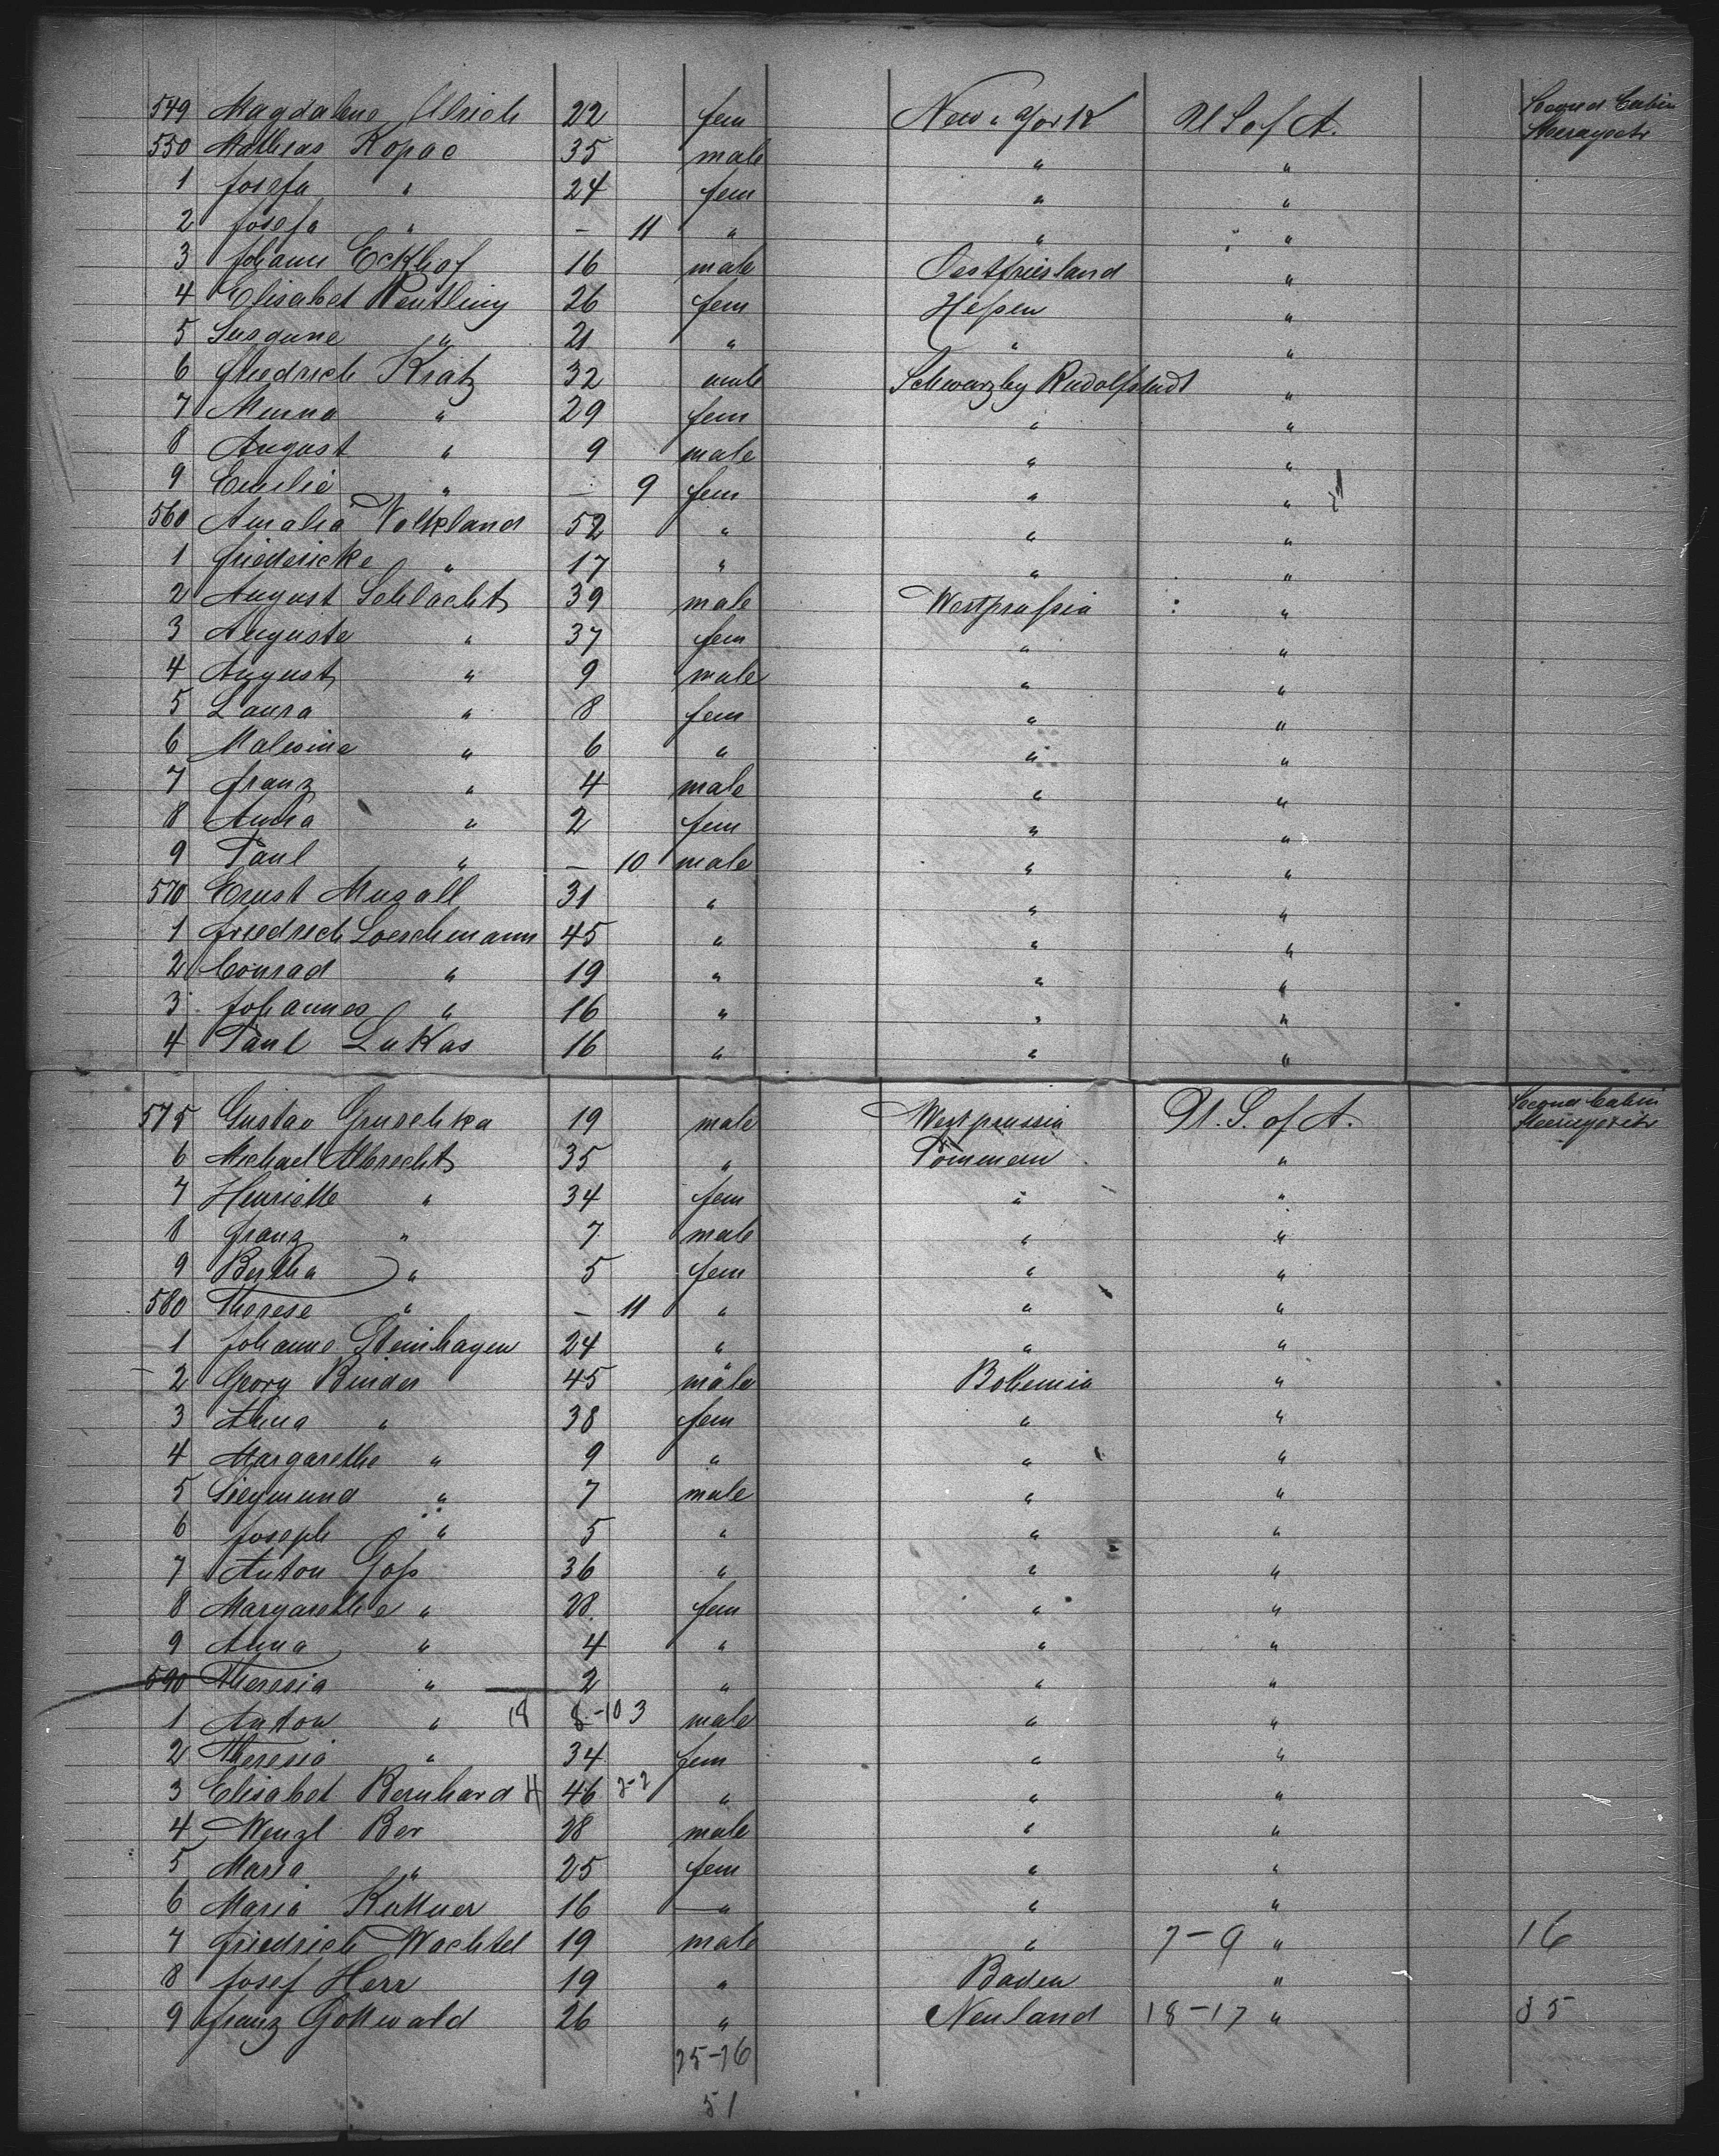 549 Magdalene Ulrich 22 fem New-York U S of A. Second Cabin
550 Mathias Kopac 35 male " " Steragectr
1 Josefa " 24 fem " "
2 Josefa " — 11 " " "
3 Johann Eckhof 16 male Oestfriesland "
4 Elisabet Reutling 26 fem Heſsen "
5 Susanne " 21 " " "
6 Friedrich Kratz 32 male Schwarzbg Rudolfstadt "
7 Minna " 29 fem " "
8 August " 9 male " "
9 Emilie " — 9 fem " "
560 Amalia Volkland 52 " " "
1 Friedericke " 17 " " "
2 August Schlacht 39 male Westpruſsia "
3 Auguste " 37 fem " "
4 August " 9 male " "
5 Laura " 8 fem " "
6 Malwine " 6 " " "
7 Franz " 4 male " "
8 Anna " 2 fem " "
9 Paul " — 10 male " "
570 Ernst Mugall 31 " " "
1 Friedrich Loeschmann 45 " " "
2 Conrad " 19 " " "
3 Johannes " 16 " " "
4 Paul Lukas 16 " " "
575 Gustav Gruschka 19 male Westprussia U. S. of A. Second Cabin
6 Michael Albrecht 35 " Pommern "
7 Henriette " 34 fem " "
8 Franz " 7 male " "
9 Bertha " 5 fem " "
580 Therese " — 11 " " "
1 Johanne Steinhagen 24 " " "
2 Georg Binder 45 male Bohemia "
3 Anna " 38 fem " "
4 Margarethe " 9 " " "
5 Siegmund " 7 male " "
6 Joseph " 5 " " "
7 Anton Goſs 36 " " "
8 Margarethe " 28 fem " "
9 Anna " 4 " " "
590 Theresia " 2 " " "
1 Anton " 18 8-10 3 male " "
2 Theresia " 34 fem " "
3 Elisabet Bernhard 46 2-2 " " "
4 Wenzl Ber 28 male " "
5 Maria " 25 fem " "
6 Maria Kuttner 16 " " "
7 Friedrich Wachtel 19 male " 7-9 " 16
8 Josef Herr 19 " Baden "
9 Franz Gottwald 26 " Neuland 18-17 " 35
25-26
51